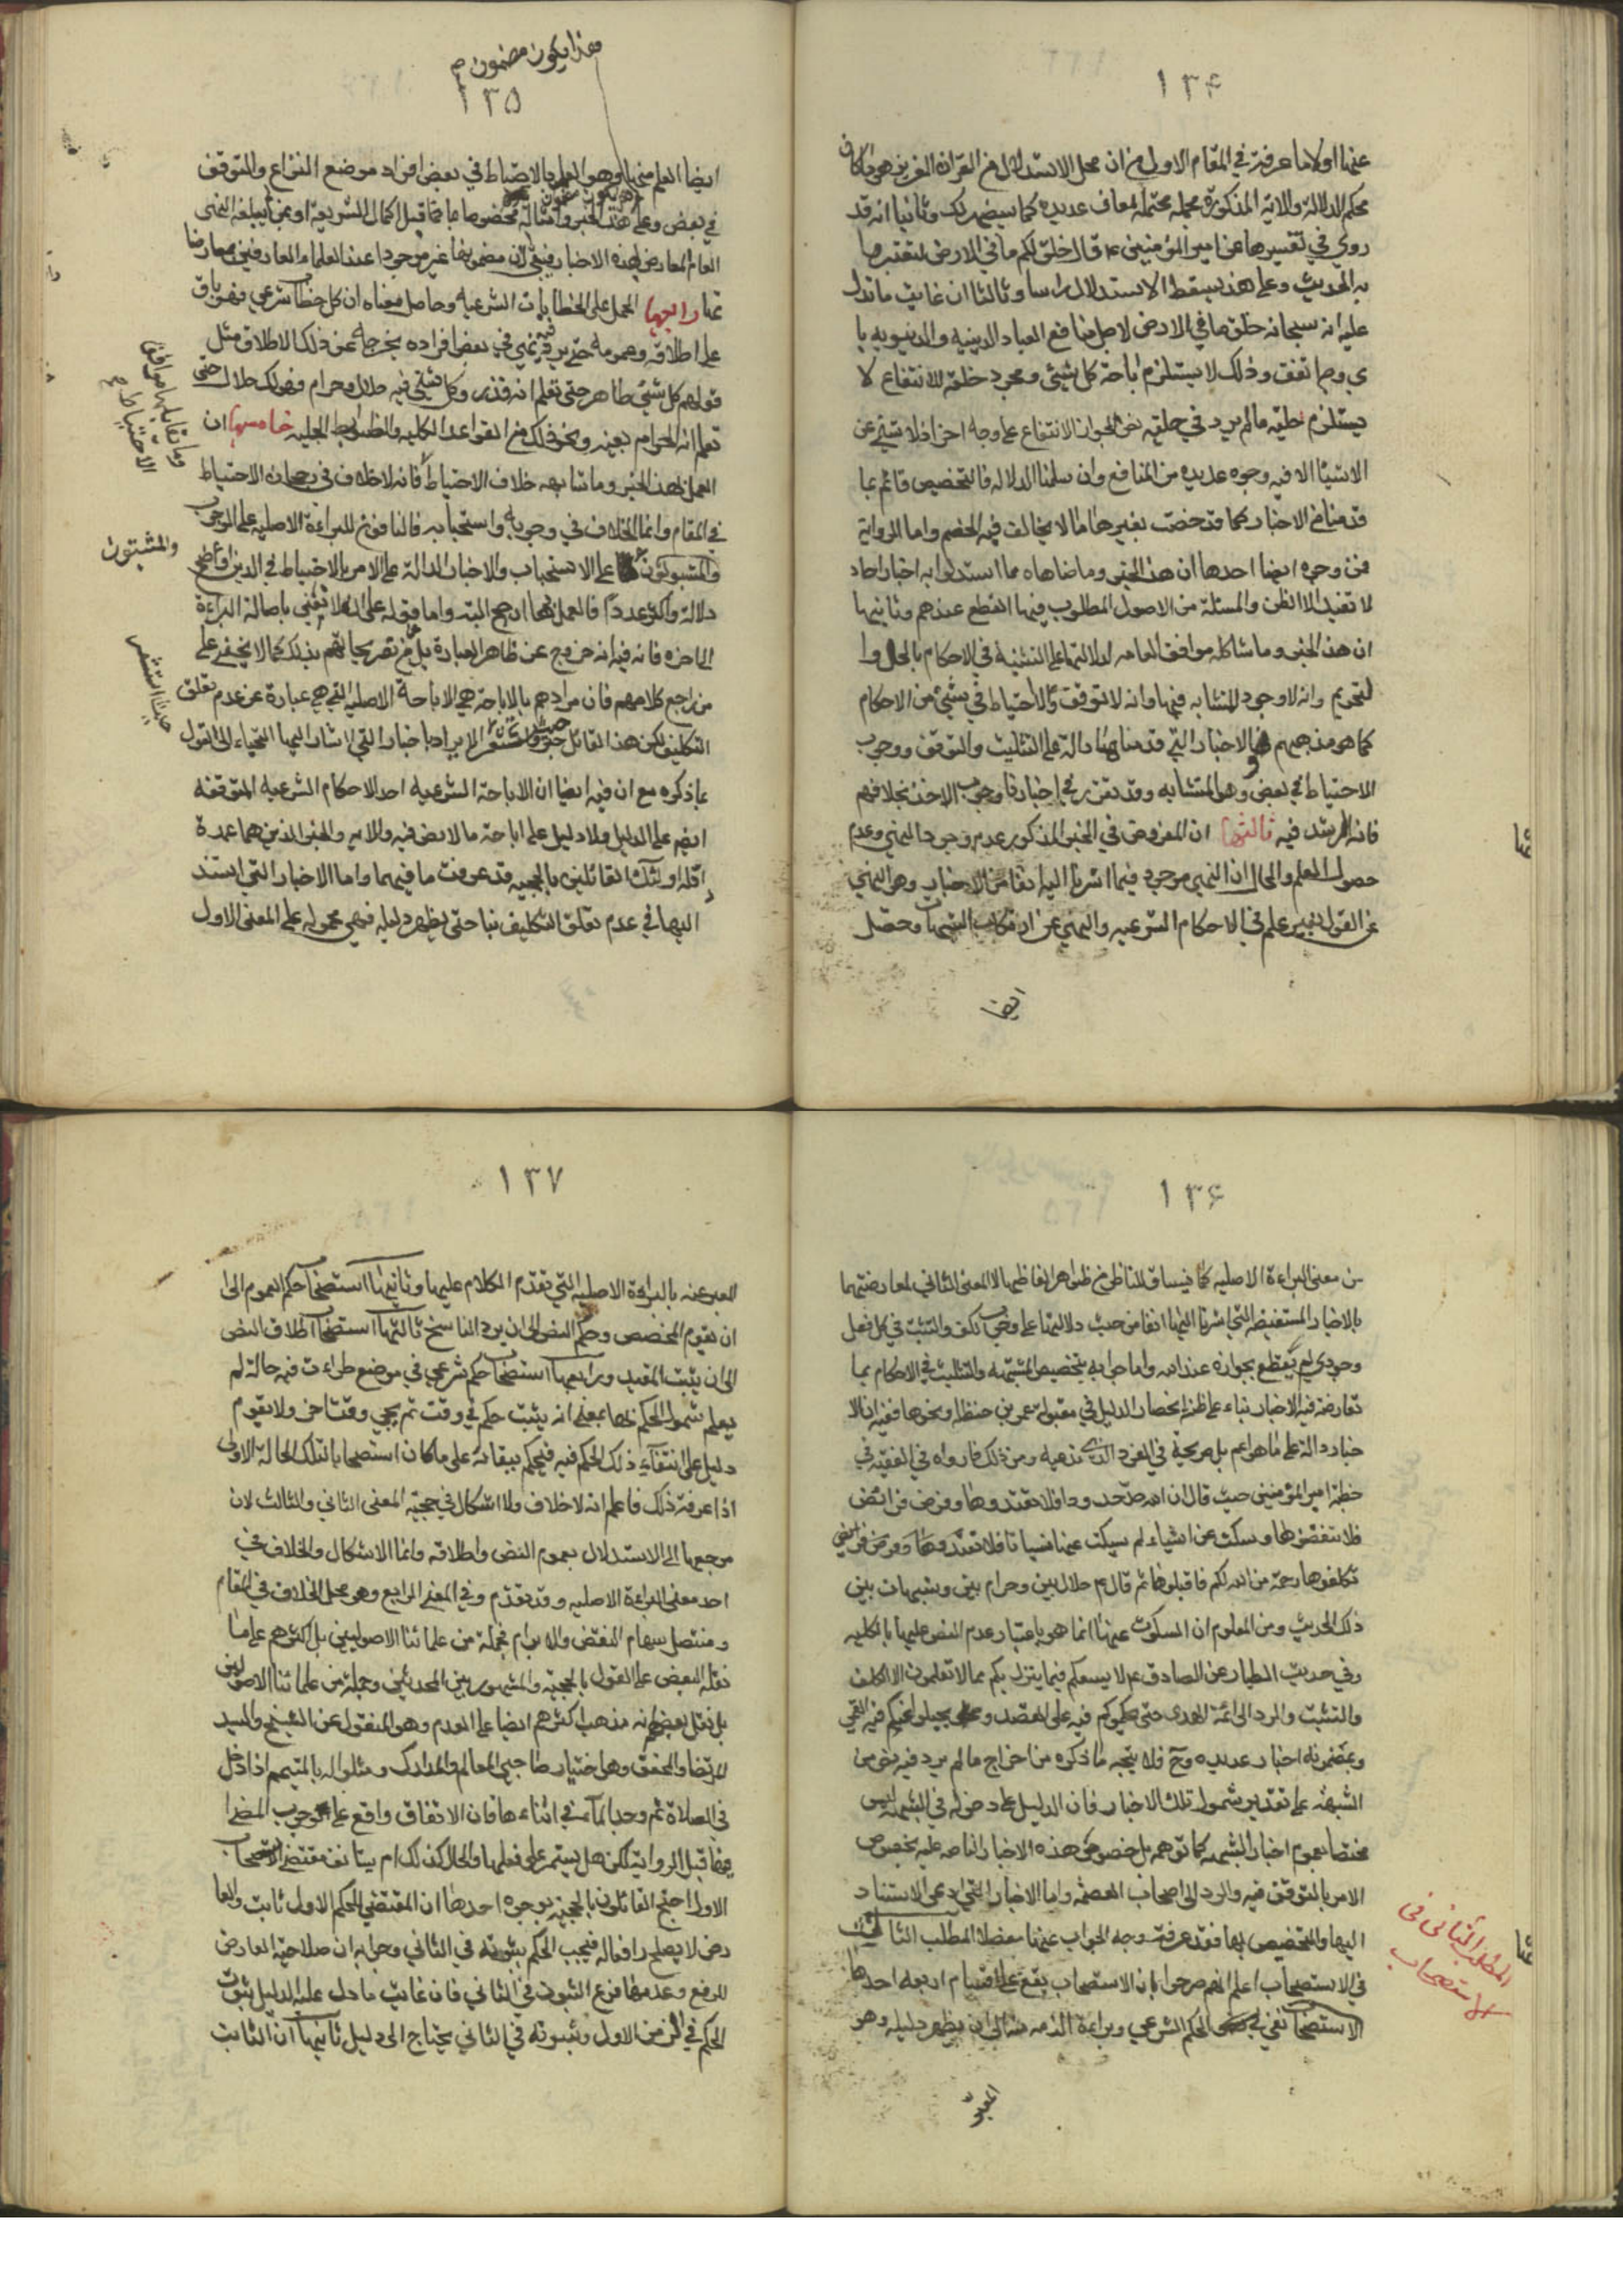 ١٣۴
عنها اولا ما عرفته في المقام الاول من ان محل الاستدلال من القران العزيز هو ما كان
محكم الدلالة والاية المذكورة مجملة محتملة لمعان عديده كما سيضهر لك وثانيا انه قد
روي في تفسيرها عن امير المؤمنين ع قال خلق لكم ما في الارض لتعتبروا
به الحديث وعلى هذا يسقط الاستدلال راسا وثالثا ان غايت ما تدل
عليه انه سبحانه خلق ما في الارض لاجل منافع العباد الدينيه والدنيويه با
ي وجه اتفق وذلك لا يستلزم اباحة كل شيئ ومجرد خلقه للانتفاع لا
يستلزم حليّة ما لم يرد في حليته نص لجواز الانتفاع على وجه اخر اذ لا شيئ من
الاشيا الا فيه وجوه عديده من المنافع وان سلمنا الدلاله فالتخصيص قائم بما
قدمنا من الاخبار كما قد خصت بغيرها مما لا يخالف فيه الخصم واما الرواية
فمن وجوه ايضا احدها ان هذا الخبر وما ضاهاه مما استدلوا به اخبار احاد
لا تفيد الا الظن والمسئلة من الاصول المطلوب فيها القطع عندهم وثانيها
ان هذا الخبر وما شاكله موافق للعامه لدلالتها على التثنية في الاحكام بالحل وا
لتحريم وانه لا وجود للمتشابه فيها وانه لا توقف ولا احتياط في شيئ من الاحكام
كما هو مذهبهم والاخبار التي قدمناها دالة على التثليث والتوقف ووجوب
الاحتياط في بعض وهو المتشابه وقد تقرر في اخبارنا وجوب الاخذ بخلافهم
فانه الرشد فيه ثالثها ان المفروض في الخبر المذكور عدم وجود النهي وعدم
حصول العلم والحال ان النهي موجود فيما اشرنا اليه انفا من الاخبار وهو النهي
عن القول بغير علم في الاحكام الشرعيه والنهي عن ارتكاب الشبهات وحصل
ايضا
وهذا يكون مضمون
١٣۵
ايضا العلم منها وهو العلم بالاحتياط في بعض افراد موضع النزاع والتوقف
في بعض وعلى هذا الخبر وامثاله مخصوصا بما قبل اكمال الشريعة او بمن لم يبلغه النهي
العام المعارض لهذه الاخبار فيبقى لان مضمونها غير موجود عند العلماء العارفين بمعارضا
تها رابعها الحمل على الخطابات الشرعيه وحاصل معناه ان كل خطاب شرعي فهو باق
على اطلاقه وعمومه حتى يرد فيه نهي في بعض افراده يخرجه عن ذلك الاطلاق مثل
قولهم كل شيئ طاهر حتى تعلم انه قذر وكل شيئ فيه حلال وحرام فهو لك حلال حتى
تعلم انه الحرام بعينه ونحو ذلك من القواعد الكليه والضوابط الجليه خامسها ان
العمل بهذا الخبر وما شابهه خلاف الاحتياط فانه لا خلاف في رجحان الاحتياط
في المقام وانما الخلاف في وجوبه واستحبابه فالنافون للبراءة الاصليه على الوجوب
على الاستحباب والاخبار الدالة على الامر بالاحتياط في الدين اوضح
والمثبتون
دلالة واكثر عددا فالعمل بها ارجح البته واما قوله على انه لا نعني باصالة البراءة
الى اخره فانه فيه انه خروج عن ظاهر العبارة بل عن تصريحاتهم بذلك كما لا يخفى على
من راجع كلامهم فان مرادهم بالاباحة هي الاباحة الاصليه التي هي عبارة عن عدم تعلق
التكليف لكن هذا القائل حيث استشعر الايراد باخبار التي اشار اليها التجاء الى القول
حيث استشعر
بما ذكره مع ان فيه ايضا ان الاباحة الشرعيه احد الاحكام الشرعيه المتوقفه
ايضا على الدليل ولا دليل على اباحة ما لا نص فيه والايه والخبر الذين هما عمدة
ادلة اولئك القائلين بالحجيه قد عرفت ما فيهما واما الاخبار التي استند
اليها في عدم تعلق التكليف بنا حتى يظهر دليله فهي محموله على المعنى الاول
١٣۶
من معنى البراءة الاصليه كما ينساق للناظر من ظواهر الفاظها لا المعنى الثاني لمعارضتها
بالاخبار المستفيضه التي اشرنا اليها انفا من حيث دلالتها على وجوب الكف والتثبت في كل فعل
وجودي لم يقطع بجوازه عند الله واما جوابه بتخصيص الشبهه والتثليث في الاحكام بما
تعارضت فيه الاخبار بناء على ظنه انحصار الدليل في مقبولة عمر بن حنظله ونحوها ففيه ان الا
خبار دالة على ما هو اعم بل صريحة في الفرد الذي ندعيه ومن ذلك ما رواه في الفقيه في
خطبة امير المؤمنين حيث قال ان الله حد حدودا فلا تعتدوها وفرض فرائض
فلا تنقضوها وسكت عن اشياء لم يسكت عنها نسيانا فلا
تكلفوها رحمة من الله لكم فاقبلوها ثم قال ع حلال بين وحرام بين وشبهات بين
ذلك الحديث ومن المعلوم ان المسكوت عنها انما هو باعتبار عدم النص عليها بالكليه
وفي حديث الطيار عن الصادق ع لا يسعكم فيما ينزل بكم مما لا تعلمون الا الكف
والتثبت والرد الى ائمة الهدى حتى يحملوكم فيه على القصد ويجلوا عنكم فيه العمي
وبمضمونه اخبار عديده وح فلا يتجه ما ذكره من اخراج ما لم يرد فيه نص من
الشبهه على تقدير شمول تلك الاخبار فان الدليل على دخوله في الشبهه ليس
مختصا بعموم اخبار الشبهه كما توهمه بل خصوص هذه الاخبار الناصه عليه بخصوص
الامر بالتوقف فيه والرد الى اصحاب العصمه واما الاخبار التي ادعى الاستناد
اليها والتخصيص بها فقد عرفت وجه الجواب عنها مفصلا المطلب الثاني
المطلب الثاني في الاستصحاب
في الاستصحاب اعلم انهم صرحوا بان الاستصحاب يقع على اقسام اربعه احدها
الاستصحاب نفي الحكم الشرعي وبراءة الذمه منه الى ان يظهر دليله وهو
المعبر
١٣٧
المعبر عنه بالبراءة الاصليه التي تقدم الكلام عليها وثانيها استصحاب حكم العموم الى
ان يقوم المخصص وحكم النص الى ان يرد الناسخ ثالثها استصحاب اطلاق النص
الى ان يثبت المقيد ورابعها استصحاب حكم شرعي في موضع طراءت فيه حالة لم
يعلم شمول الحكم لها بمعنى انه يثبت حكم في وقت ثم يجي وقت اخر ولا يقوم
دليل على انتفاء ذلك الحكم فيه فيحكم ببقائه على ما كان استصحابا لتلك الحالة الاولى
اذا عرفت ذلك فاعلم انه لا خلاف ولا اشكال في حجية المعنى الثاني والثالث لان
مرجعها الى الاستدلال بعموم النص واطلاقه وانما الاشكال والخلاف في
احد معنى البراءة الاصليه وقد تقدم وفي المعنى الرابع وهو محل الخلاف في المقام
ومنتصل سهام النقض والابرام فجملة من علمائنا الاصوليين بل اكثرهم على ما
نقله البعض على القول بالحجيه والمشهور بين المحدثين وجملة من علمائنا الاصوليين
بل نقل بعض انه مذهب اكثرهم ايضا على العدم وهو المنقول عن الشيخ والسيد
المرتضا والمحقق وهو اختيار صاحبي المعالم والمدارك ومثلوا له بالمتيمم اذا دخل
في الصلاة ثم وجد الماء في اثناءها فان الاتفاق واقع على وجوب المضا
فيها قبل الرواية لكن هل يستمر على فعلها والحال كذلك ام يستانف مقتضى الاستصحاب
الاول احتج القائلون بالحجيه بوجوه احدها ان المقتضي للحكم الاول ثابت والعا
رض لا يصلح رافعا له فيجب الحكم بثبوته في الثاني وجوابه ان صلاحية العارض
للرفع وعدمها فرع الثبوت في الثاني فان غايت ما دل عليه الدليل ثبوت
الحكم في الزمن الاول وثبوته في الثاني يحتاج الى دليل ثانيها ان الثابت